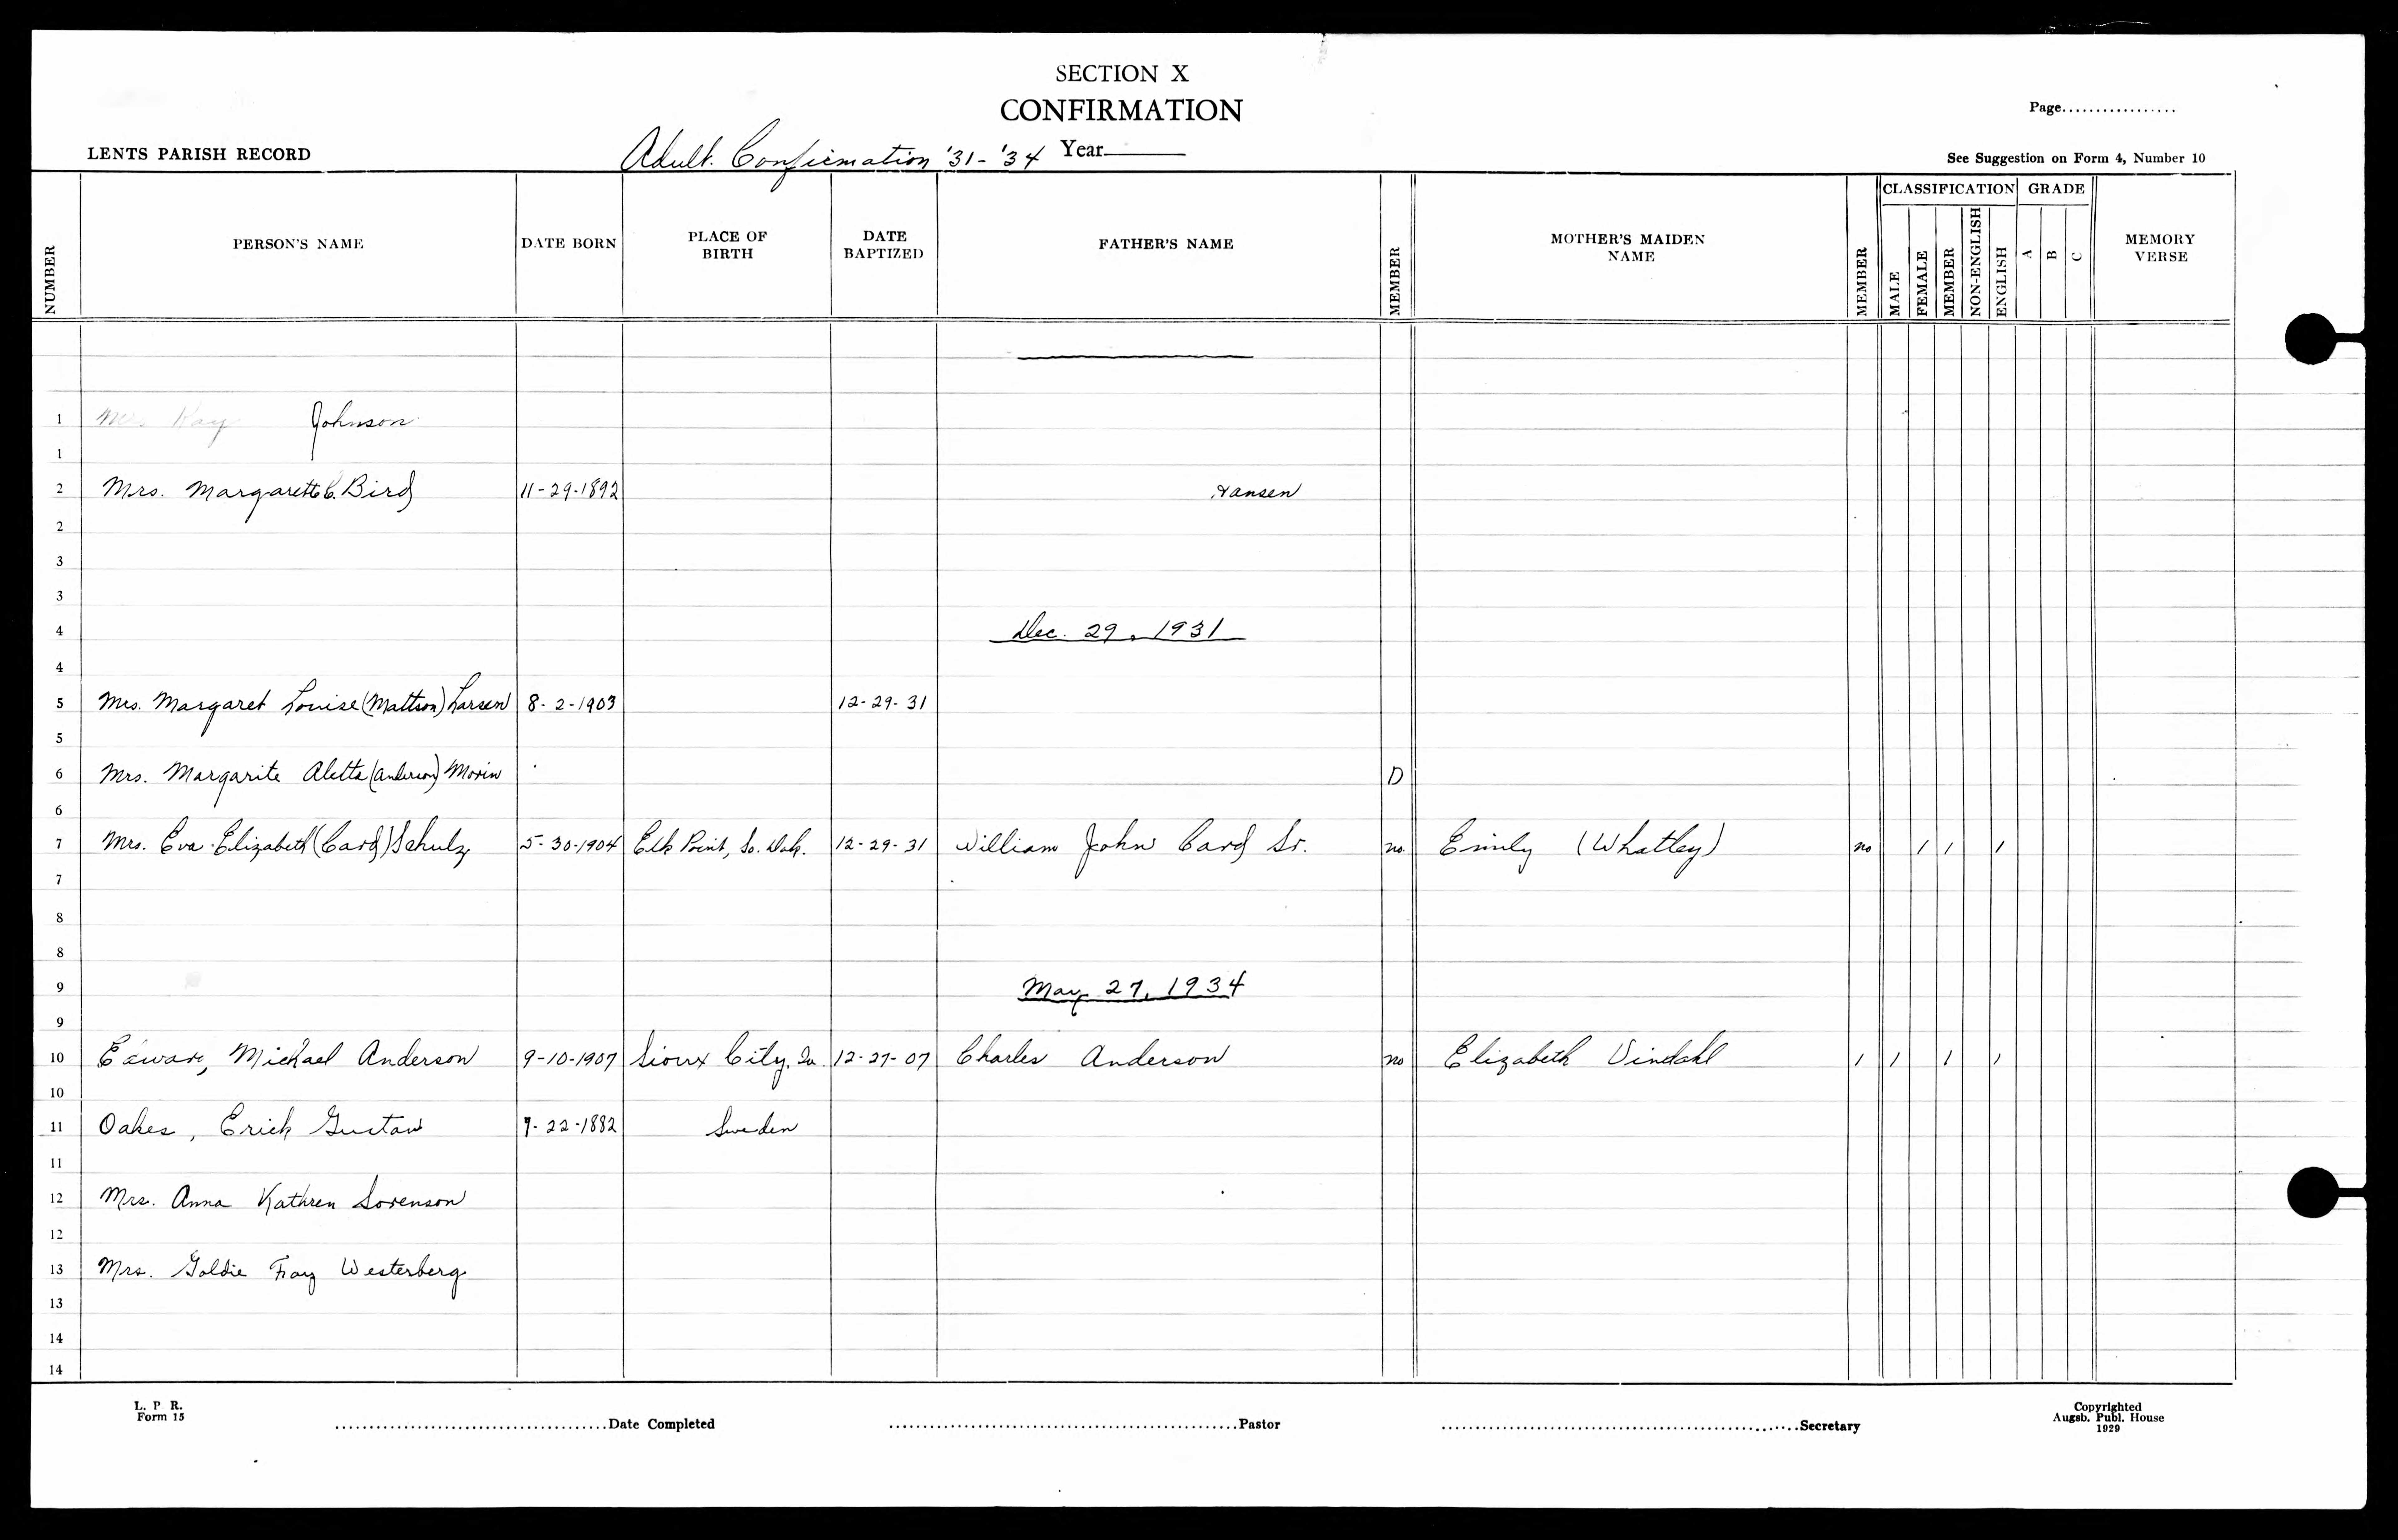 SECTION X
CONFIRMATION
Page.................
LENTS PARISH RECORD
Adult. Confirmation '31-'34 Year
See Suggestion on Form 4, Number 10
NUMBER PERSON'S NAME DATE BORN PLACE OF BIRTH DATE BAPTIZED FATHER'S NAME MEMBER MOTHER'S MAIDEN NAME MEMBER CLASSIFICATION MALE FEMALE MEMBER NON-ENGLISH ENGLISH GRADE A B C MEMORY VERSE
1 Mrs Ray Johnson
1
2 Mrs. Margarette C. Bird 11-29-1892 Hansen
2
3
3
4 Dec. 29, 1931
4
5 Mrs. Margaret Louise (Mattson) Larsen 8-2-1903 12-29-31
5
6 Mrs. Margarite Aletta (Anderson) Morin D
6
7 Mrs. Eva Elizabeth (Card) Schulz 5-30-1904 Elk Point, So. Dak. 12-29-31 William John Card Sr. no. Emily (Whatley) no / / /
7
8
8
9 May 27, 1934
9
10 Edward, Michael Anderson 9-10-1907 Sioux City, Ia. 12-27-07 Charles Anderson no Elizabeth Vindahl / / / /
10
11 Oakes, Erick Gustav 7-22-1882 Sweden
11
12 Mrs. Anna Kathren Sorenson
12
13 Mrs. Goldie Fray Westerberg
13
14
14
L. P. R.
Form 15
Date Completed
Pastor
Secretary
Copyrighted
Augsb. Publ. House
1929